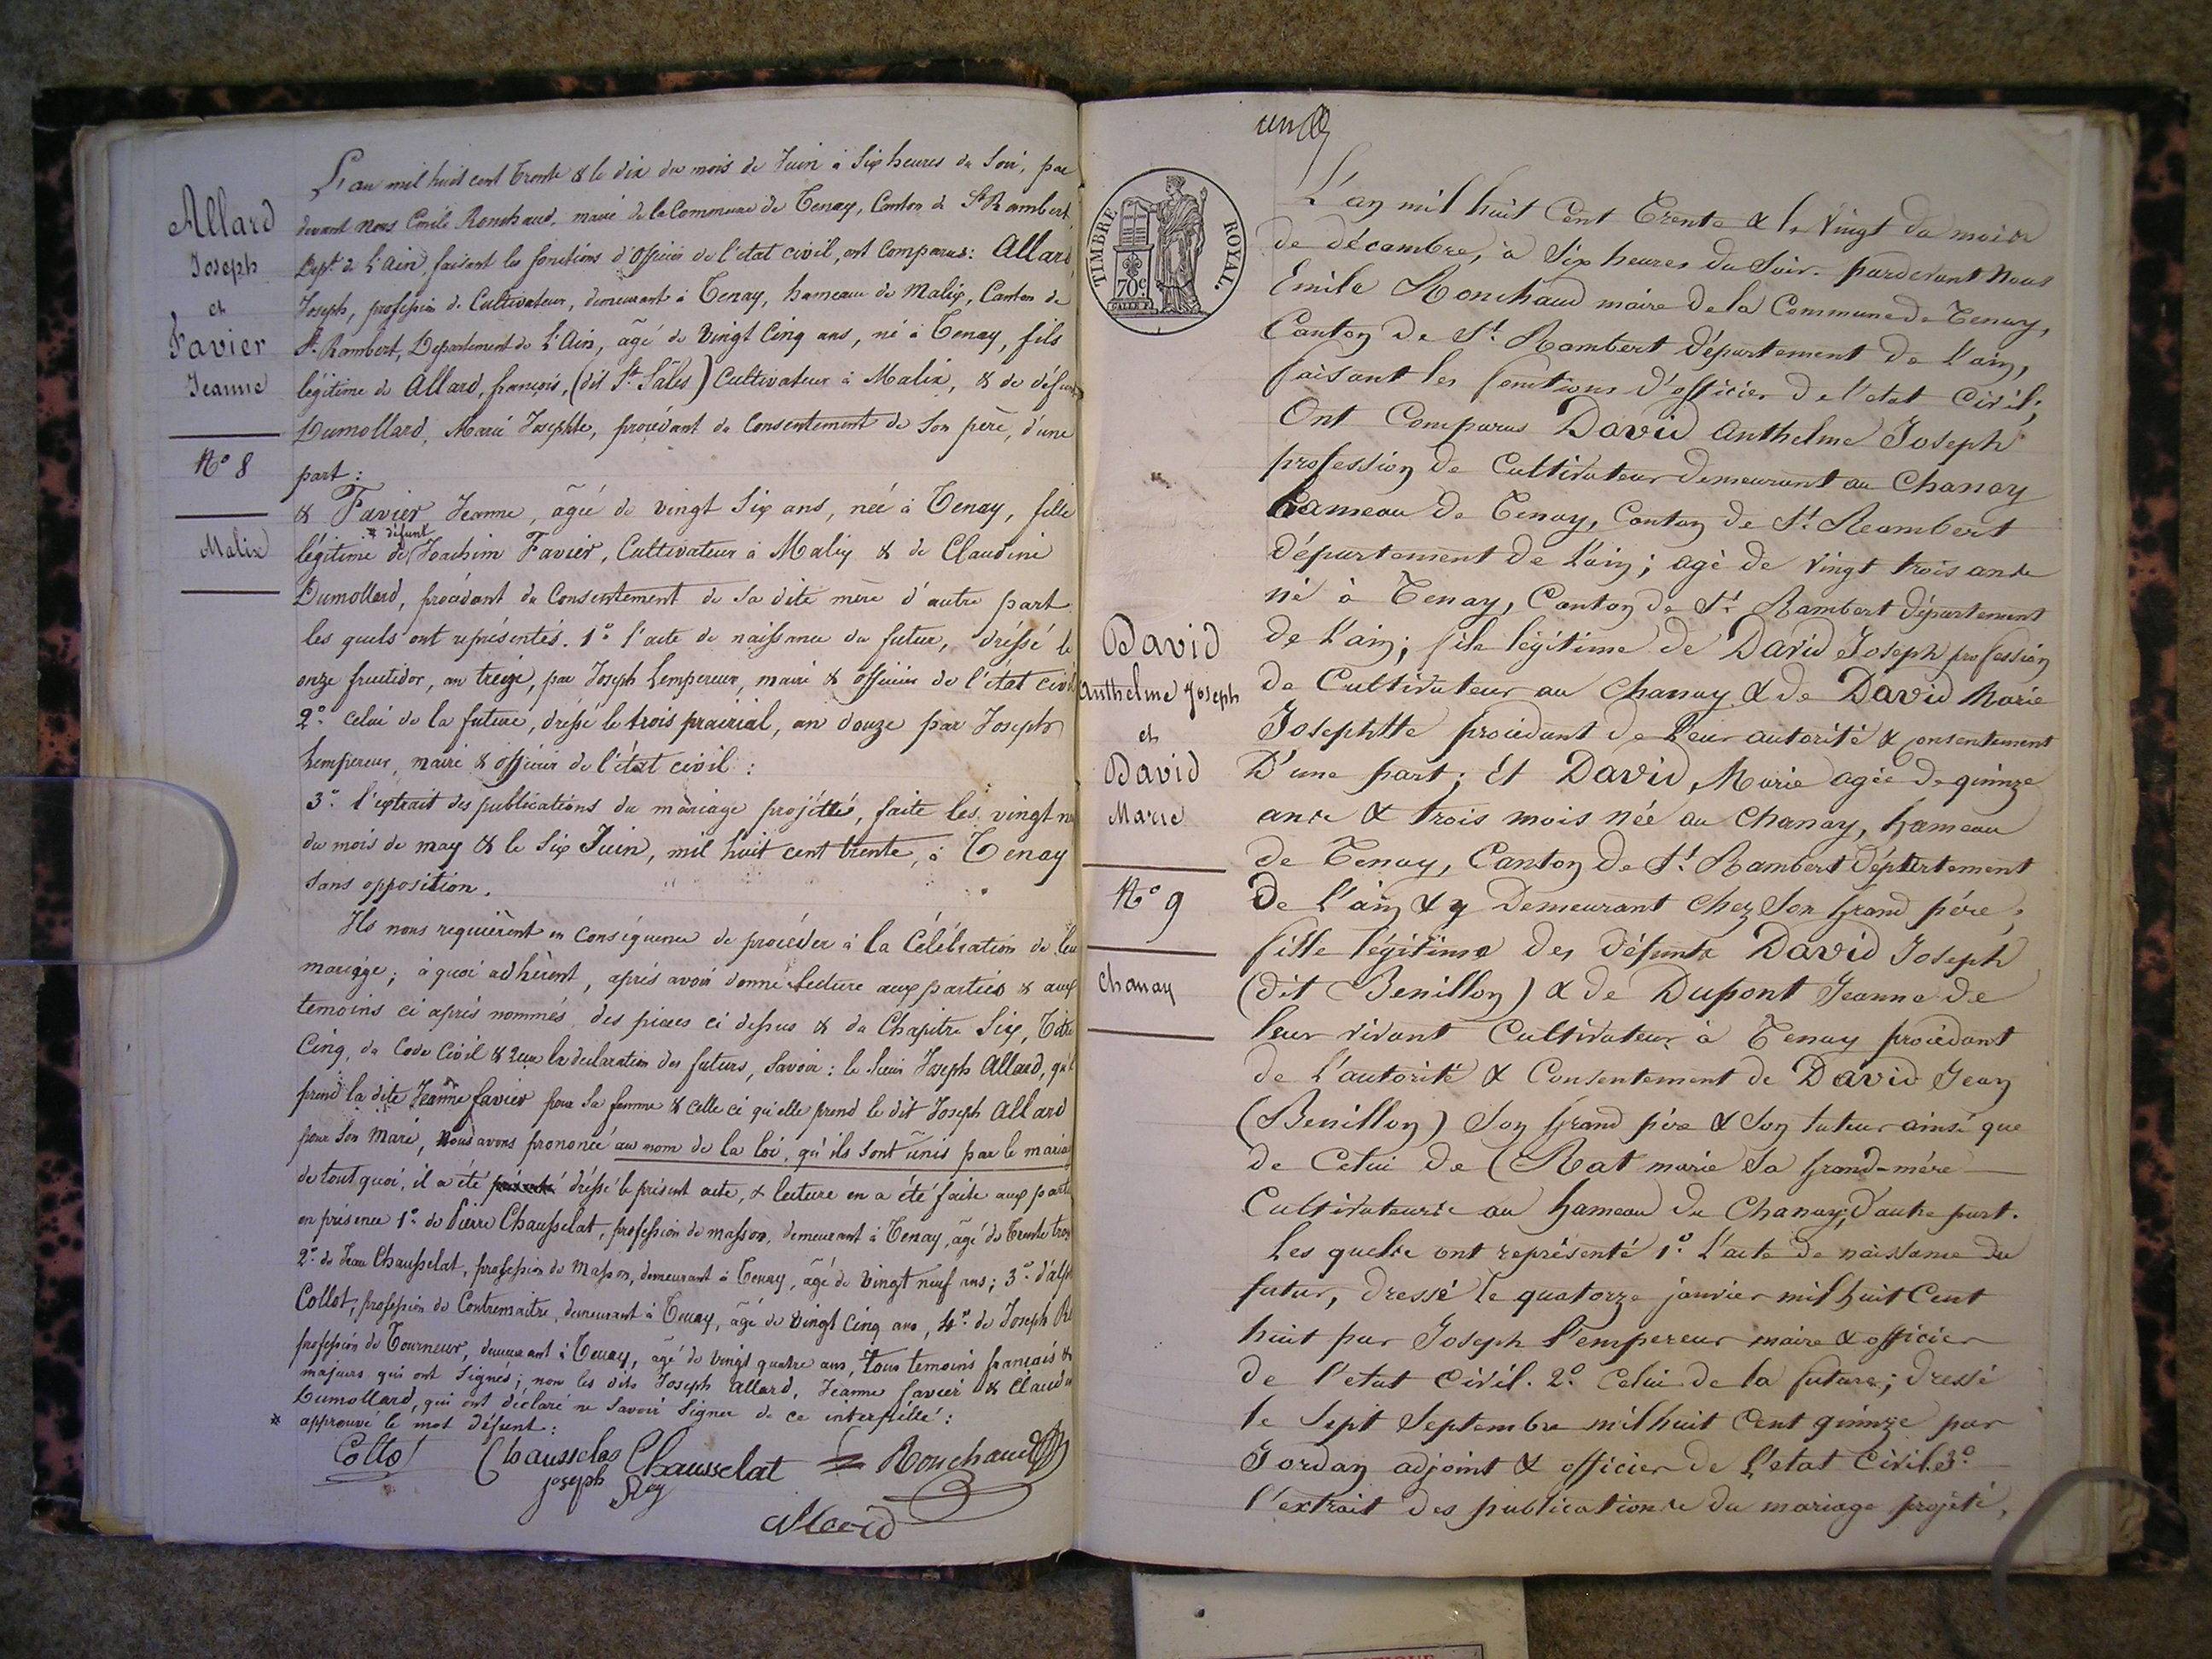 Allard
Joseph
et
Favier
Jeanne
N° 8
Malix
L'an mil huit cent trente & le dix du mois de Juin à Six heures du Soir, par
devant nous Emile Ronchaud, maire de la Commune de Tenay, Canton de St Rambert
Dept. de L'Ain, faisant les fonctions d'Officier de l'état civil, ont Comparus: Allard
Joseph, profession de Cultivateur, demeurant à Tenay, hameau de Malix, Canton de
St. Rambert, Departement de L'Ain, agé de Vingt Cinq ans, né à Tenay, fils
légitime de Allard, françois, (dit St. Sales) Cultivateur à Malix, & de défunte
Dumollard, Marie Josephte, procédant du Consentement de Son père, d'une
part:
& Favier Jeanne, agée de vingt Six ans, née à Tenay, fille
* défunt
légitime de Joachim Favier, Cultivateur à Malix & de Claudine
Dumollard, procédant du Consentement de Sa dite mère d'autre part
les quels ont représentés. 1° l'acte de naissance du futur, dréssé le
onze fructidor, an treize, par Joseph Lempereur, maire & officier de l'état civil
2° celui de la future, dréssé le trois prairial, an douze par Joseph
Lempereur, maire & officier de l'état civil:
3° l'extrait des publications du mariage projetté, faite les vingt
du mois de may & le Six Juin, mil huit cent trente, à Tenay
Sans opposition.
Ils nous requièrent en conséquence de procéder à la Célébration de leur
mariage; à quoi adhèrent, après avoir donné lecture aux parties & aux
temoins ci après nommés des pieces ci dessus & du Chapitre Six, Titre
Cinq, du Code Civil & la declaration des futurs, Savoir: le Sieur Joseph Allard, qu'il
prend la dite Jeanne favier pour Sa femme & celle ci qu'elle prend le dit Joseph Allard
pour Son Mari, Nous avons prononcé au nom de la loi, qu'ils Sont unis par le mariage
de tout quoi, il a été dréssé le présent acte, & lecture en a été faite aux parties
en présence 1° de Pierre Chausselat, profession de masson, demeurant à Tenay, agé de trente trois
2° de Jean Chausselat, profession de Masson, demeurant à Tenay, agé de Vingt neuf ans; 3° d'
Collot, profession de Contremaitre, demeurant à Tenay, agé de Vingt Cinq ans, 4° de Joseph
profession de Tourneur, demeurant à Tenay, agé de Vingt quatre ans, tous temoins français &
majeurs qui ont Signés; non les dits Joseph Allard, Jeanne favier & Claudine
Dumollard, qui ont déclaré ne Savoir Signer de ce interpellé:
* approuvé le mot défunt:
Collot Chausselas Chausselat Ronchaud
joseph Rey
Allard
TIMBRE ROYAL.
70c
David
Anthelme Joseph
et
David
Marie
N° 9
Chanay
L'an mil huit Cent Trente & le Vingt du mois
de décembre, à Six heures du Soir. pardevant Nous
Emile Ronchaud maire de la Commune de Tenay,
Canton de St. Rambert département de l'ain,
faisant les fonctions d'officier de l'etat Civil;
Ont Comparus David Anthelme Joseph
profession de Cultivateur demeurant au Chanay
hameau de Tenay, Canton de St. Reambert
département de l'ain; agé de Vingt trois ans
né à Tenay, Canton de St. Rambert département
de l'ain; fils légitime de David Joseph profession
de Cultivateur au Chanay & de David Marie
Josephtte procedant de Leur autorité & Consentement
D'une part; Et David, Marie agée de quinze
ans & trois mois née au Chanay, hameau
de Tenay, Canton de St. Rambert département
de l'ain & y Demeurant chez Son Grand pére,
fille légitime des défunts David Joseph
(dit Benillon) & de Dupont Jeanne de
leur vivant Cultivateur à Tenay procédant
de l'autorité & Consentement de David Jean
(Benillon) Son Grand pére & Son tuteur ainsi que
de Celui de (Rat marie Sa Grand-mére
Cultivateurs au hameau du Chanay; d'autre part.
Les quels ont représenté 1° L'acte de naissance du
futur, dressé le quatorze janvier mil huit Cent
huit par Joseph l'empereur maire & officier
de l'etat Civil. 2° Celui de la future; dressé
le Sept Septembre mil huit Cent quinze par
Jordan adjoint & officier de L'etat Civil. 3°
l'extrait des publications du mariage projeté,